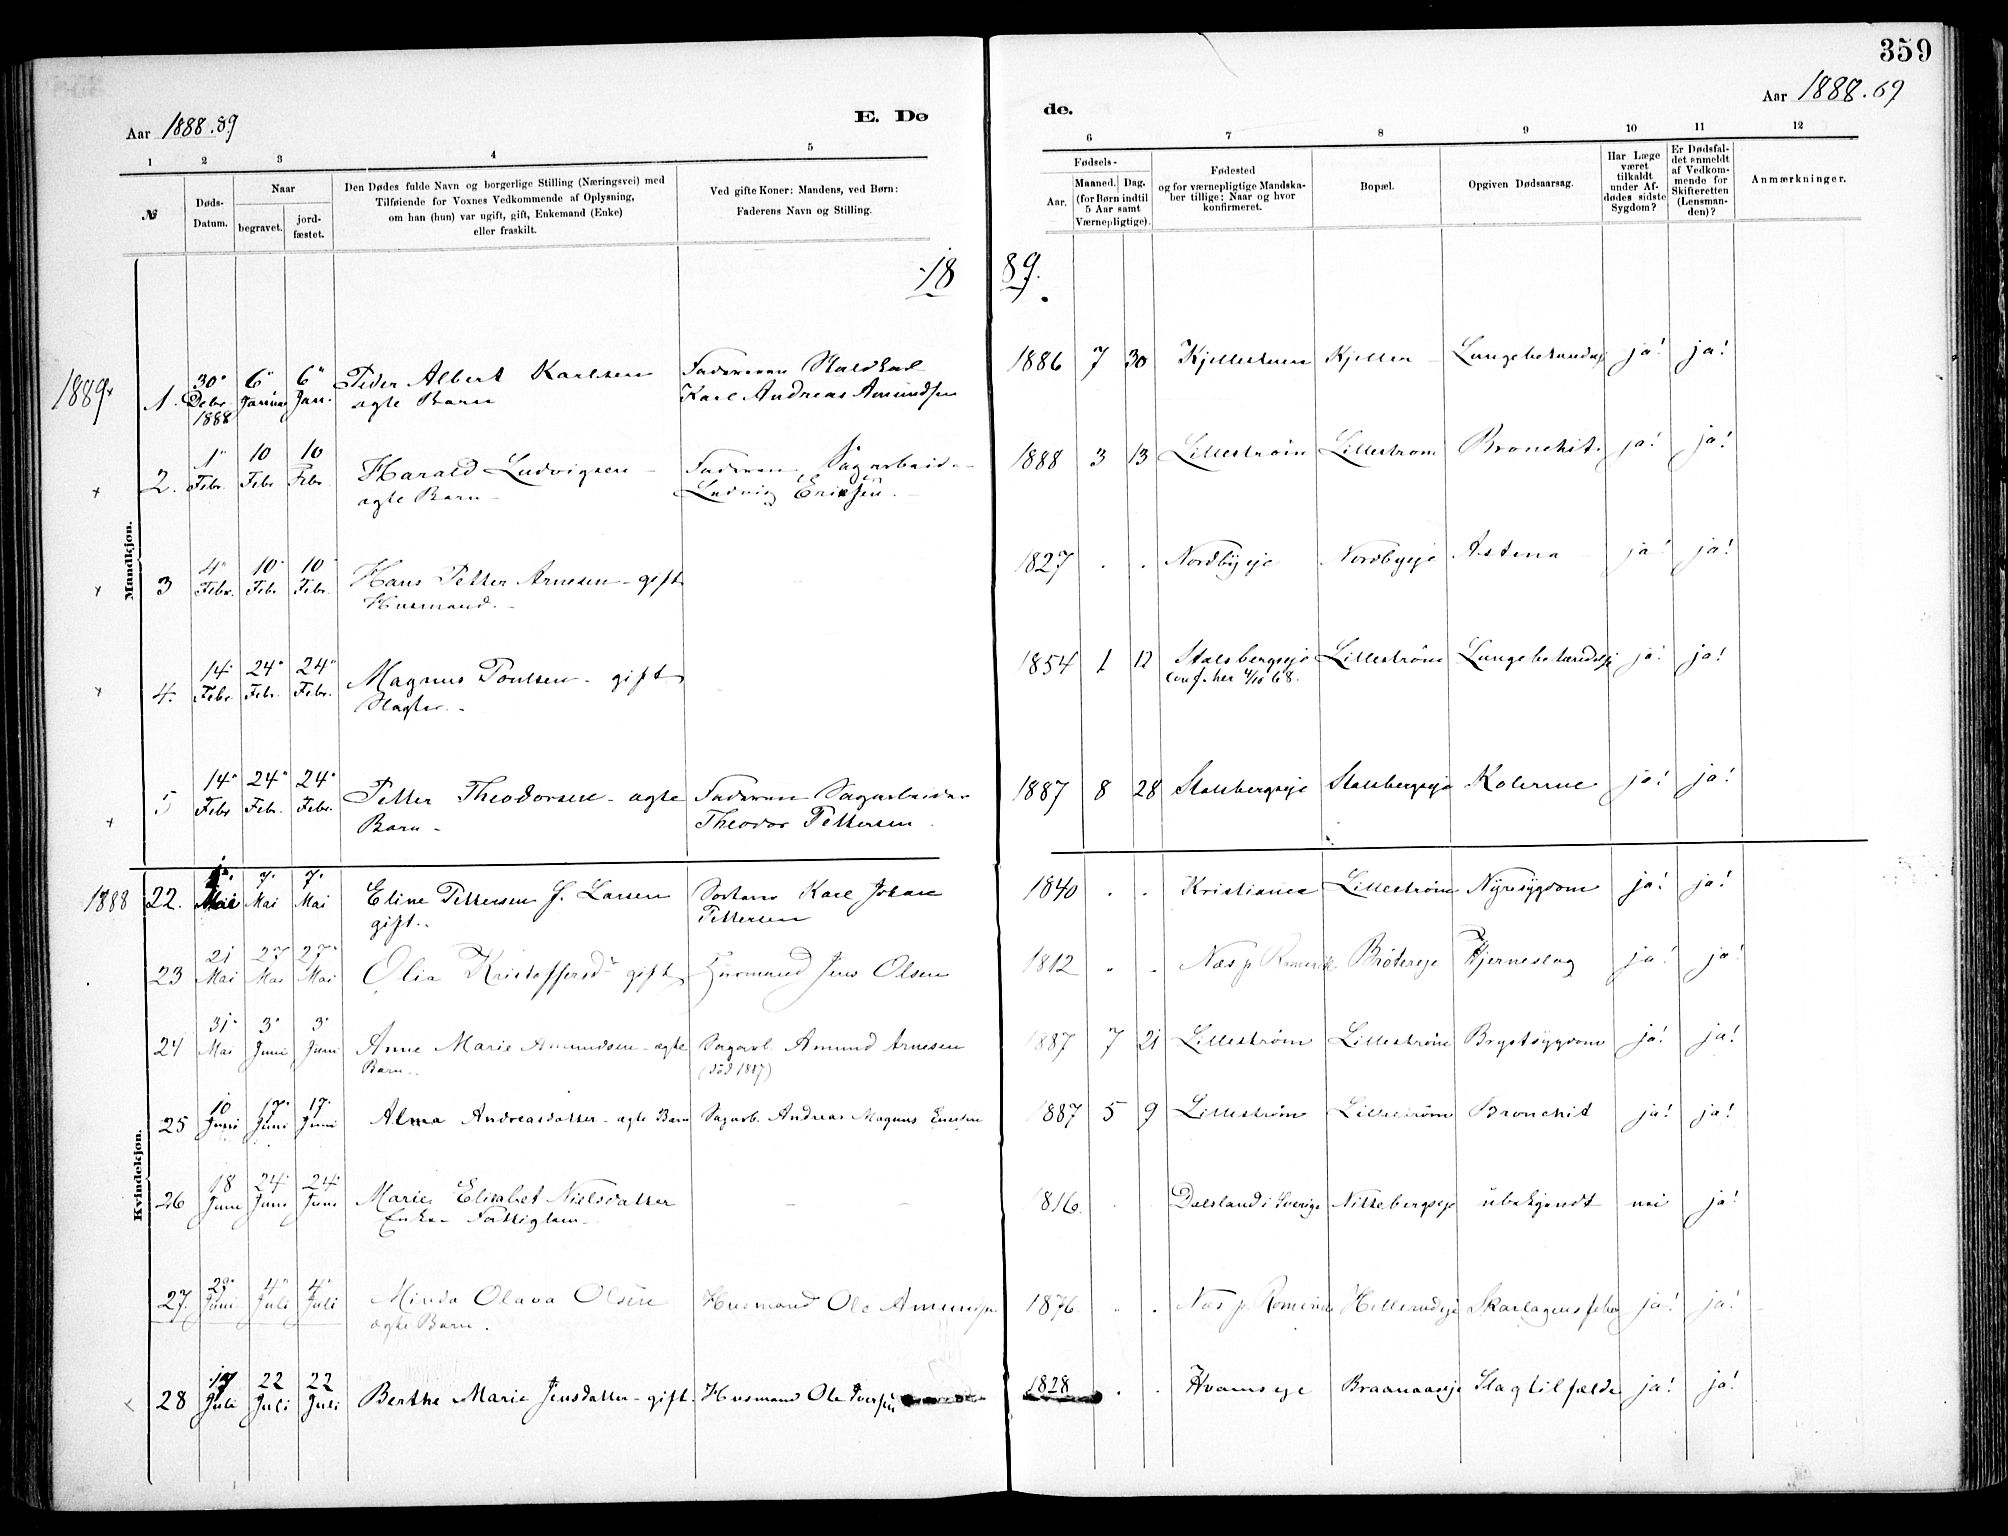 359
Aar 1888.89
E. Dø
de.
Aar 1888.69
1 2 3 4 5 6 7 8 9 10 11 12
№
Døds-
Datum.
Naar
begravet.
jord-
fæstet.
Den Dødes fulde Navn og borgerlige Stilling (Næringsvei) med
Tilføiende for Voxnes Vedkommende af Oplysning,
om han (hun) var ugift, gift, Enkemand (Enke)
eller fraskilt.
Ved gifte Koner: Mandens, ved Børn:
Faderens Navn og Stilling.
Fødsels-
Aar.
Maaned. Dag.
(for Børn indtil
5 Aar samt
Værnepligtige).
Fødested
og for værnepligtige Mandska-
ber tillige: Naar og hvor
konfirmeret.
Bopæl.
Opgiven Dødsaarsag.
Har Læge
været
tilkaldt
under Af-
dødes sidste
Sygdom?
Er Dødsfal-
det anmeldt
af Vedkom-
mende for
Skifteretten
(Lensman-
den)?
Anmærkninger.
Mandkjøn.
18 89.
1889
1. 30 Debr 1888 6 Januar 6 Jan. Peder Albert Karlsen
ægte Barn
Faderen Staldkarl
Karl Andreas Amundsen
1886 7 30 Kjellerhuen Kjeller Lungebetændelse ja! ja!
2. 1 Febr. 10 Febr 10 Febr. Harald Ludvigsen
ægte Barn
Faderen, Sagarbeid.
Ludvig Eriksen.
1888 3 13 Lillestrøm Lillestrøm Bronchit. ja! ja!
3 4 Febr. 10 Febr 10 Febr. Hans Petter Arnesen - gift
Husmand.
1827 . . Nordbyeje Nordbyeje Astma ja! ja!
4. 14 Febr 24 Febr. 24 Febr. Magnus Poulsen - gift
Slagter.
1854 1 12 Stalsbergeje
conf. her 4/10 68.
Lillestrøm Lungebetændelse ja! ja!
5 14 Febr 24 Febr. 24 Febr. Petter Theodorsen - ægte
Barn -
Faderen Sagarbeider
Theodor Pettersen.
1887 8 28 Stalsbergeje Stalsbergeje Kolerine ja! ja!
Kvindekjøn.
1888
22. Mai 7 Mai 7 Mai Eline Pettersen f. Larsen
gift.
Karl Johan
Pettersen
1840 . . Kristiania Lillestrøm Nyresygdom ja! ja!
23 21 Mai 27 Mai 27 Mai Olia Kristoffersd gift Husmand Jens Olsen
1812 . . Næs p. Romerik Brøtereje Hjerneslag ja! ja!
24 31 Mai 3 Juni 3 Juni Anne Marie Amundsen - ægte
Barn.
Sagarb. Amund Arnesen
(død 1887)
1887 7 21 Lillestrøm Lillestrøm Brystsygdom ja! ja!
25 10 Juni 17 Juni 17 Juni Alma Andreasdatter - ægte Barn Sagarb. Andreas Magnus
1887 5 9 Lillestrøm Lillestrøm Bronchit ja! ja!
26 18 Juni 24 Juni 24 Juni Marie Elisabet Nielsdatter
Enke - Fattiglem -
1816. Dalsland i Sverige Nittebergseje ubekjendt nei ja!
27. Juni 4 Juli 4 Juli Minda Olava Olsen
ægte Barn.
Husmand Ole Amundsen
1876 . . Næs p. Romerike Skarlagensfeber ja! ja!
28 Juli 22 Juli 22 Juli Berthe Marie Jensdatter - gift. Husmand Ole Iversen
1828 . . Hvamseje Braanaaseje Slagtilfælde ja! ja!